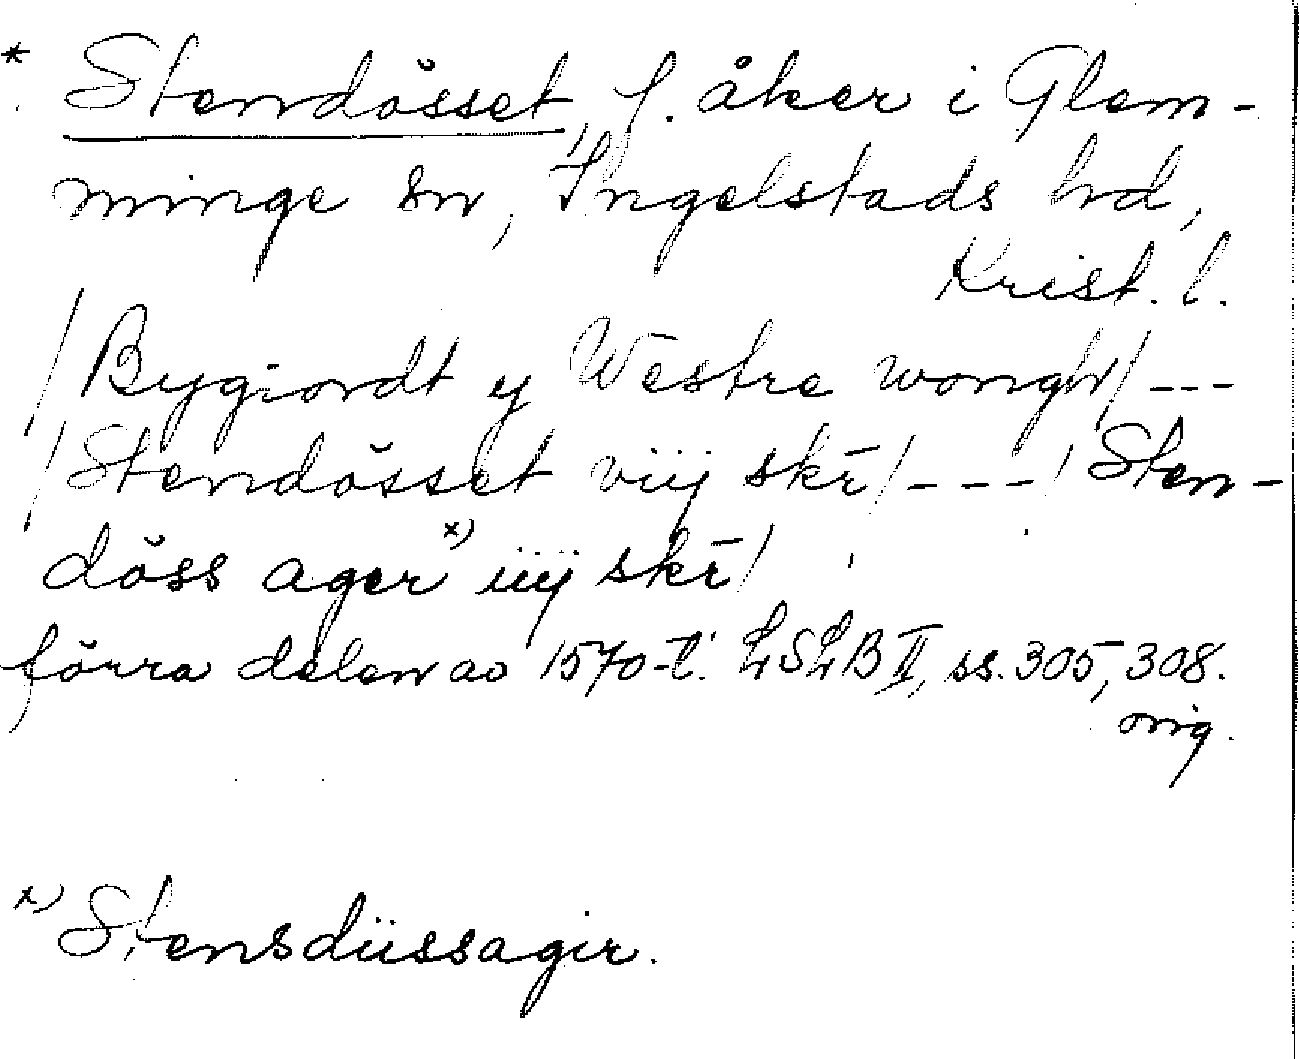 * Stendösset, f. åker i Glem-
minge sn, Ingelstads hd,
Krist. l.
/Bygiordt y Westre wongh/ ---
/Stendösset viij skr̄/ --- / Sten-
döss ager x) iiij skr̄/
förra delen av 1570-t. LSLB II, ss. 305, 308.
orig.
x) Stensdüssagir.